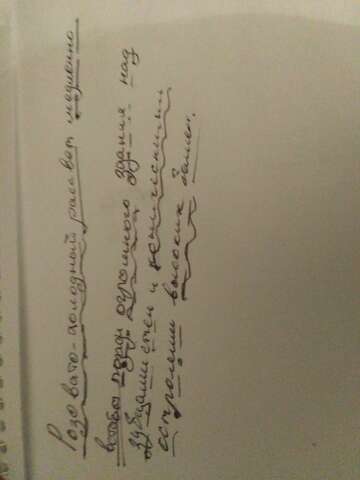 Розовато-холодный рассвет медленно
вставал позади огромного здания над
зубцами стен и коническими
остриями высоких башен.